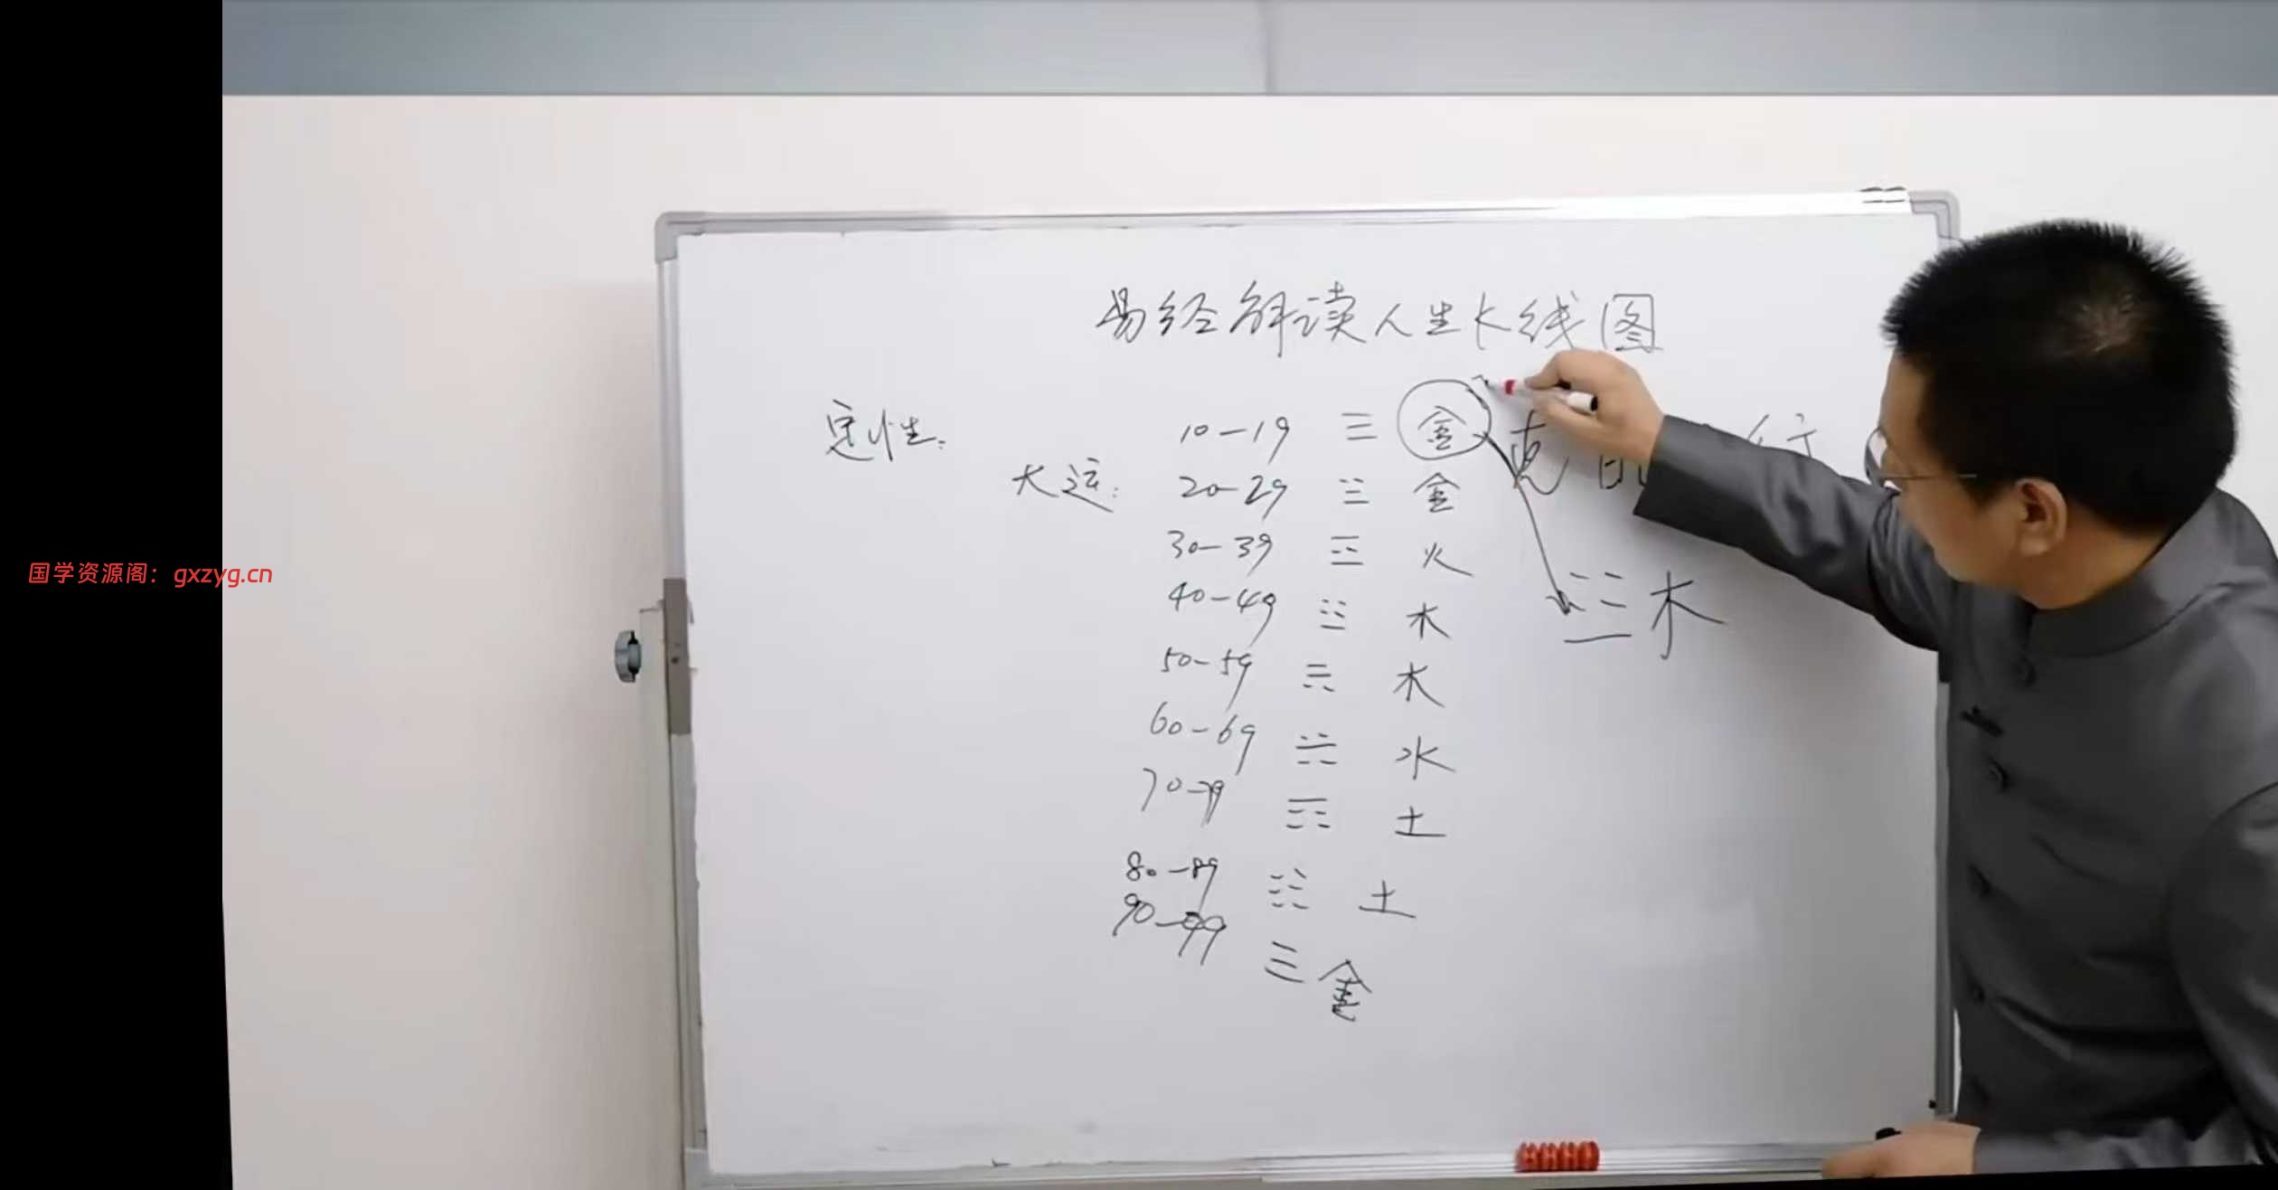 易经解读人生K线图
定性:
大运:
10-19 ☰ 金 克
20-29 ☱ 金
30-39 ☲ 火
40-49 ☳ 木
50-59 ☴ 木
60-69 ☵ 水
70-79 ☶ 土
80-89 ☷ 土
90-99 ☰ 金
☳木
国学资源阁：gxzyg.cn